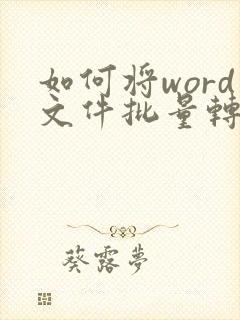 如何将word
文件批量轉
葵露夢